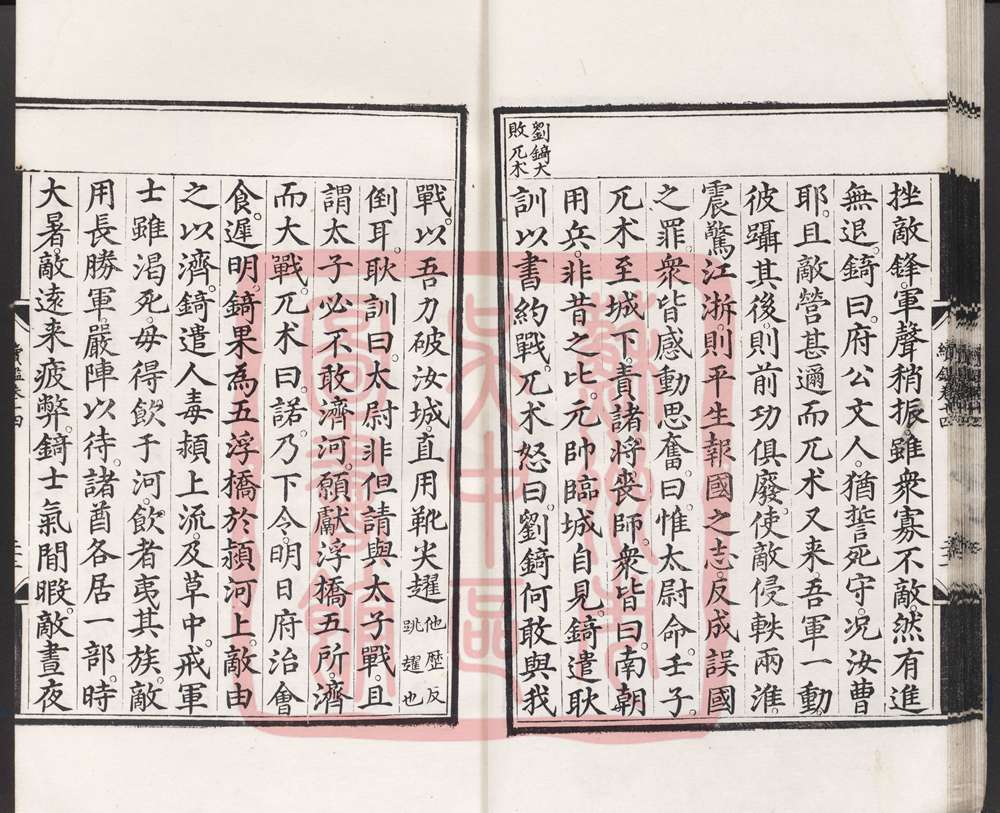 挫敵鋒。軍聲稍振。雖衆寡不敵。然有進
無退。錡曰。府公文人。猶誓死守。况汝曹
耶。且敵營甚邇。而兀术又来。吾軍一動。
彼躡其後。則前功俱廢。使敵侵軼兩淮。
震驚江浙。則平生報國之志。反成誤國
之罪。衆皆感動思奮。曰。惟太尉命。壬子。
兀术至城下。責諸將喪師。衆皆曰。南朝
用兵。非昔之比。元帥臨城自見。錡遣耿
訓以書約戰。兀术怒曰。劉錡何敢與我
劉錡大
敗兀术
戰。以吾力破汝城。直用靴尖趯他歷反
跳趯也
倒耳。耿訓曰。太尉非但請與太子戰。且
謂太子必不敢濟河。願獻浮橋五所。濟
而大戰。兀术曰。諾。乃下令。明日府治會
食。遲明。錡果為五浮橋於潁河上。敵由
之以濟。錡遣人毒潁上流。及草中。戒軍
士雖渴死。毋得飲于河。飲者夷其族。敵
用長勝軍。嚴陣以待。諸酋各居一部。時
大暑。敵遠来疲弊。錡士氣間暇。敵晝夜